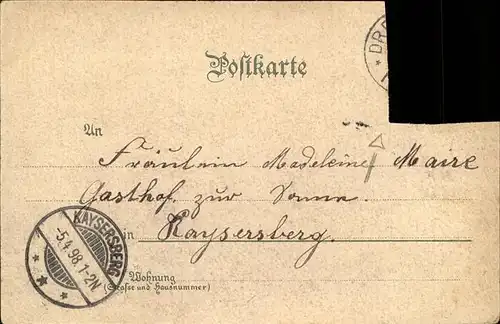 Postkarte
DR
An
Fräulein Madeleine Maire
Gasthof. zur Sonne.
in Kaysersberg.
KAYSERSBERG
5.4.98.1-2N
Wohnung
(Straße und Hausnummer)